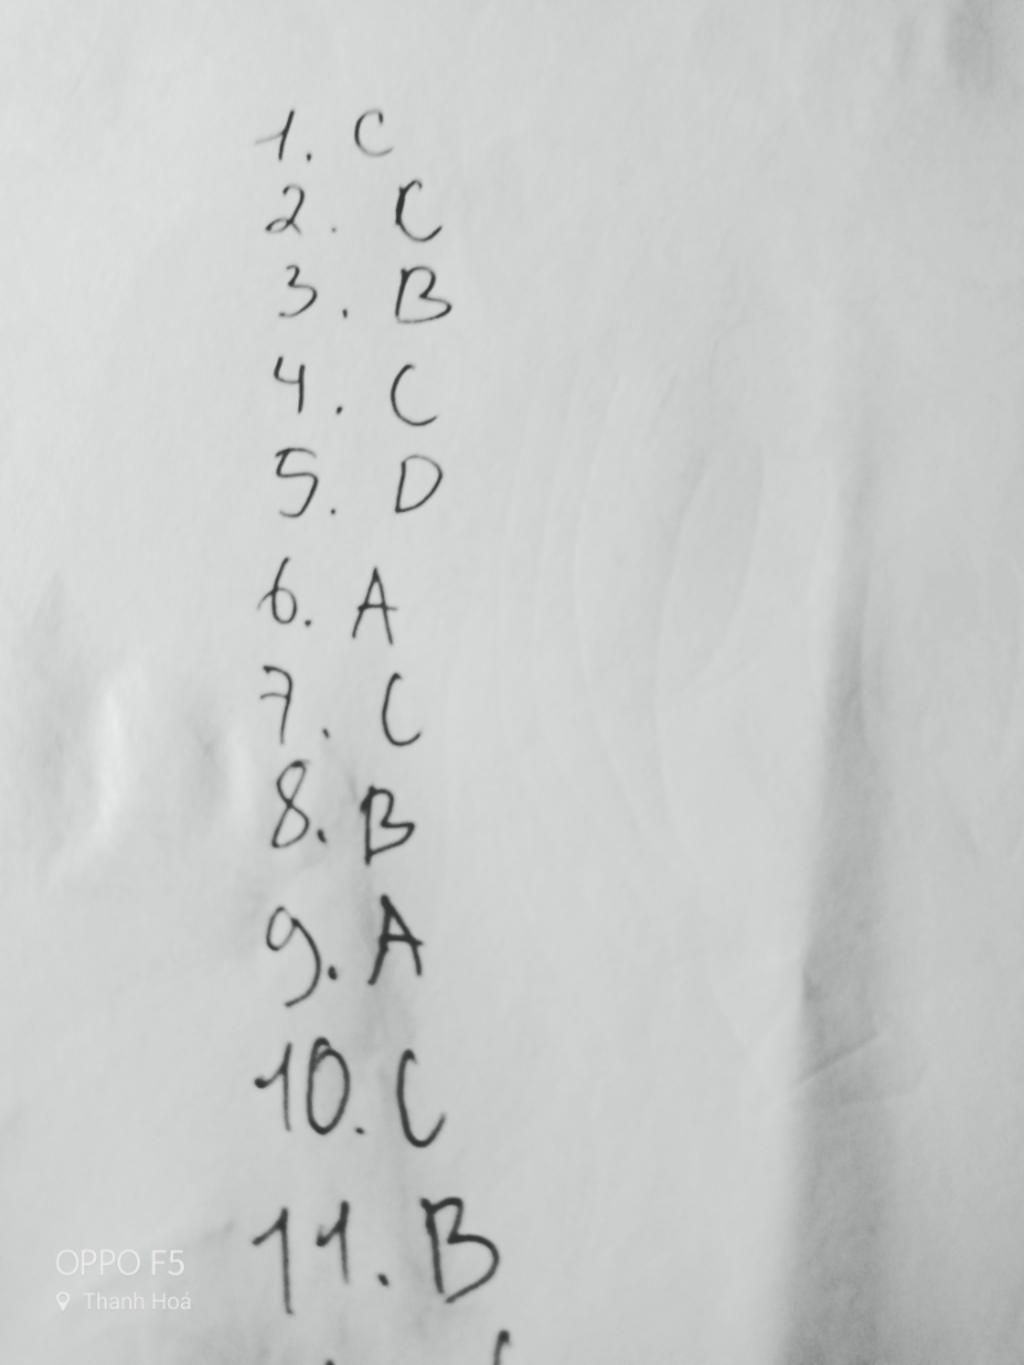 1. C
2. C
3. B
4. C
5. D
6. A
7. C
8. B
9. A
10. C
11. B
OPPO F5
Thanh Hoá